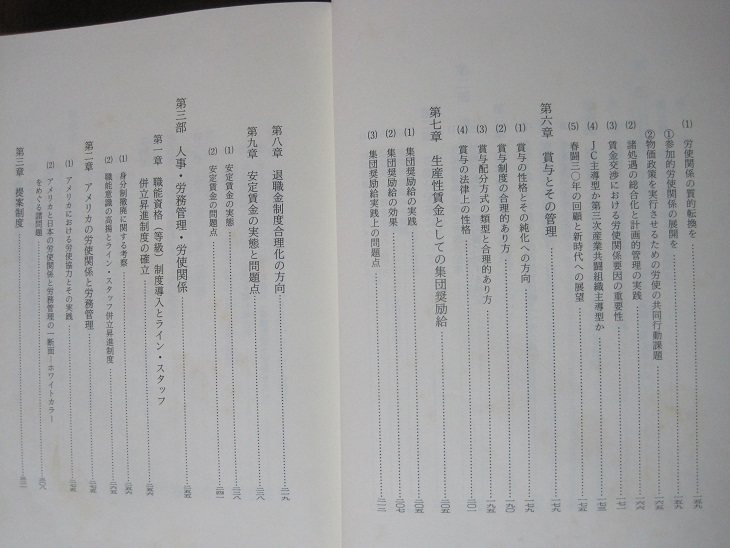 (1) 労使関係の質的転換を……一五九
① 参加的労使関係の展開を……一五九
② 物価政策を実行させるための労使の共同行動課題
(2) 諸処遇の総合化と計画的管理の実践
(3) 賃金交渉における労使関係要因の重要性……一七一
(4) JC主導型か第三次産業共闘組織主導型か
(5) 春闘三〇年の回顧と新時代への展望……一七五
第六章 賞与とその管理……一七九
(1) 賞与の性格とその純化への方向……一七九
(2) 賞与制度の合理的あり方……一九〇
(3) 賞与配分方式の類型と合理的あり方……一九五
(4) 賞与の法律上の性格……二〇一
第七章 生産性賃金としての集団奨励給……二〇五
(1) 集団奨励給の実践……二〇五
(2) 集団奨励給の効果……二〇七
(3) 集団奨励給実践上の問題点……二一三
第八章 退職金制度合理化の方向……二一九
第九章 安定賃金の実態と問題点……二三八
(1) 安定賃金の実態……二三八
(2) 安定賃金の問題点……二四一
第三部 人事・労務管理・労使関係……二五五
第一章 職能資格(等級)制度導入とライン・スタッフ
併立昇進制度の確立……二五六
(1) 身分制撤廃に関する考察……二五六
(2) 職能意識の高揚とライン・スタッフ併立昇進制度……二六五
第二章 アメリカの労使関係と労務管理……二七五
(1) アメリカにおける労使協力とその実践……二七五
(2) アメリカと日本の労使関係と労務管理の一断面—ホワイトカラー
をめぐる諸問題……三〇八
第三章 提案制度